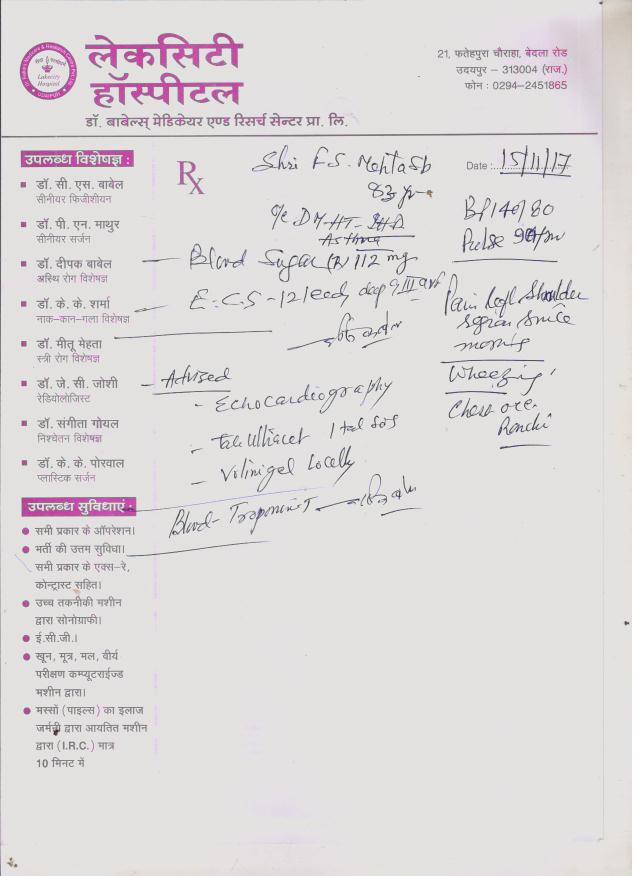 लेकसिटी
हॉस्पीटल
डॉ. बाबेल्स् मेडिकेयर एण्ड रिसर्च सेन्टर प्रा. लि.
Lakecity
Hospital
UDAIPUR
21, फतेहपुरा चौराहा, बेदला रोड
उदयपुर – 313004 (राज.)
फोन : 0294-2451865
उपलब्ध विशेषज्ञ :
डॉ. सी. एस. बाबेल
सीनीयर फिजीशीयन
डॉ. पी. एन. माथुर
सीनीयर सर्जन
डॉ. दीपक बाबेल
अस्थि रोग विशेषज्ञ
डॉ. के. के. शर्मा
नाक–कान–गला विशेषज्ञ
डॉ. मीतू मेहता
स्त्री रोग विशेषज्ञ
डॉ. जे. सी. जोशी
रेडियोलोजिस्ट
डॉ. संगीता गोयल
निश्चेतन विशेषज्ञ
डॉ. के. के. पोरवाल
प्लास्टिक सर्जन
उपलब्ध सुविधाएं :
सभी प्रकार के ऑपरेशन।
भर्ती की उत्तम सुविधा।
सभी प्रकार के एक्स–रे,
कोन्ट्रास्ट सहित।
उच्च तकनीकी मशीन
द्वारा सोनोग्राफी।
ई.सी.जी.।
खून, मूत्र, मल, वीर्य
परीक्षण कम्प्यूटराईज्ड
मशीन द्वारा।
मस्सों (पाइल्स) का इलाज
जर्मनी द्वारा आयतित मशीन
द्वारा (I.R.C.) मात्र
10 मिनट में
Rx
Shri F.S. Mehta Sb
83 yr
Date : 15/11/17
DM-HT-IHD
Asthma
BP 140/80
Pulse
Blood Sugar (R) 112 mg
E.C.G - 12 lead,
Pain left Shoulder
region since
morning
Wheezing
Chest
Ronchi
Advised
- Echocardiography
- Tab Ultracet 1 tab SOS
- Volinigel Locally
Blood- Troponin T